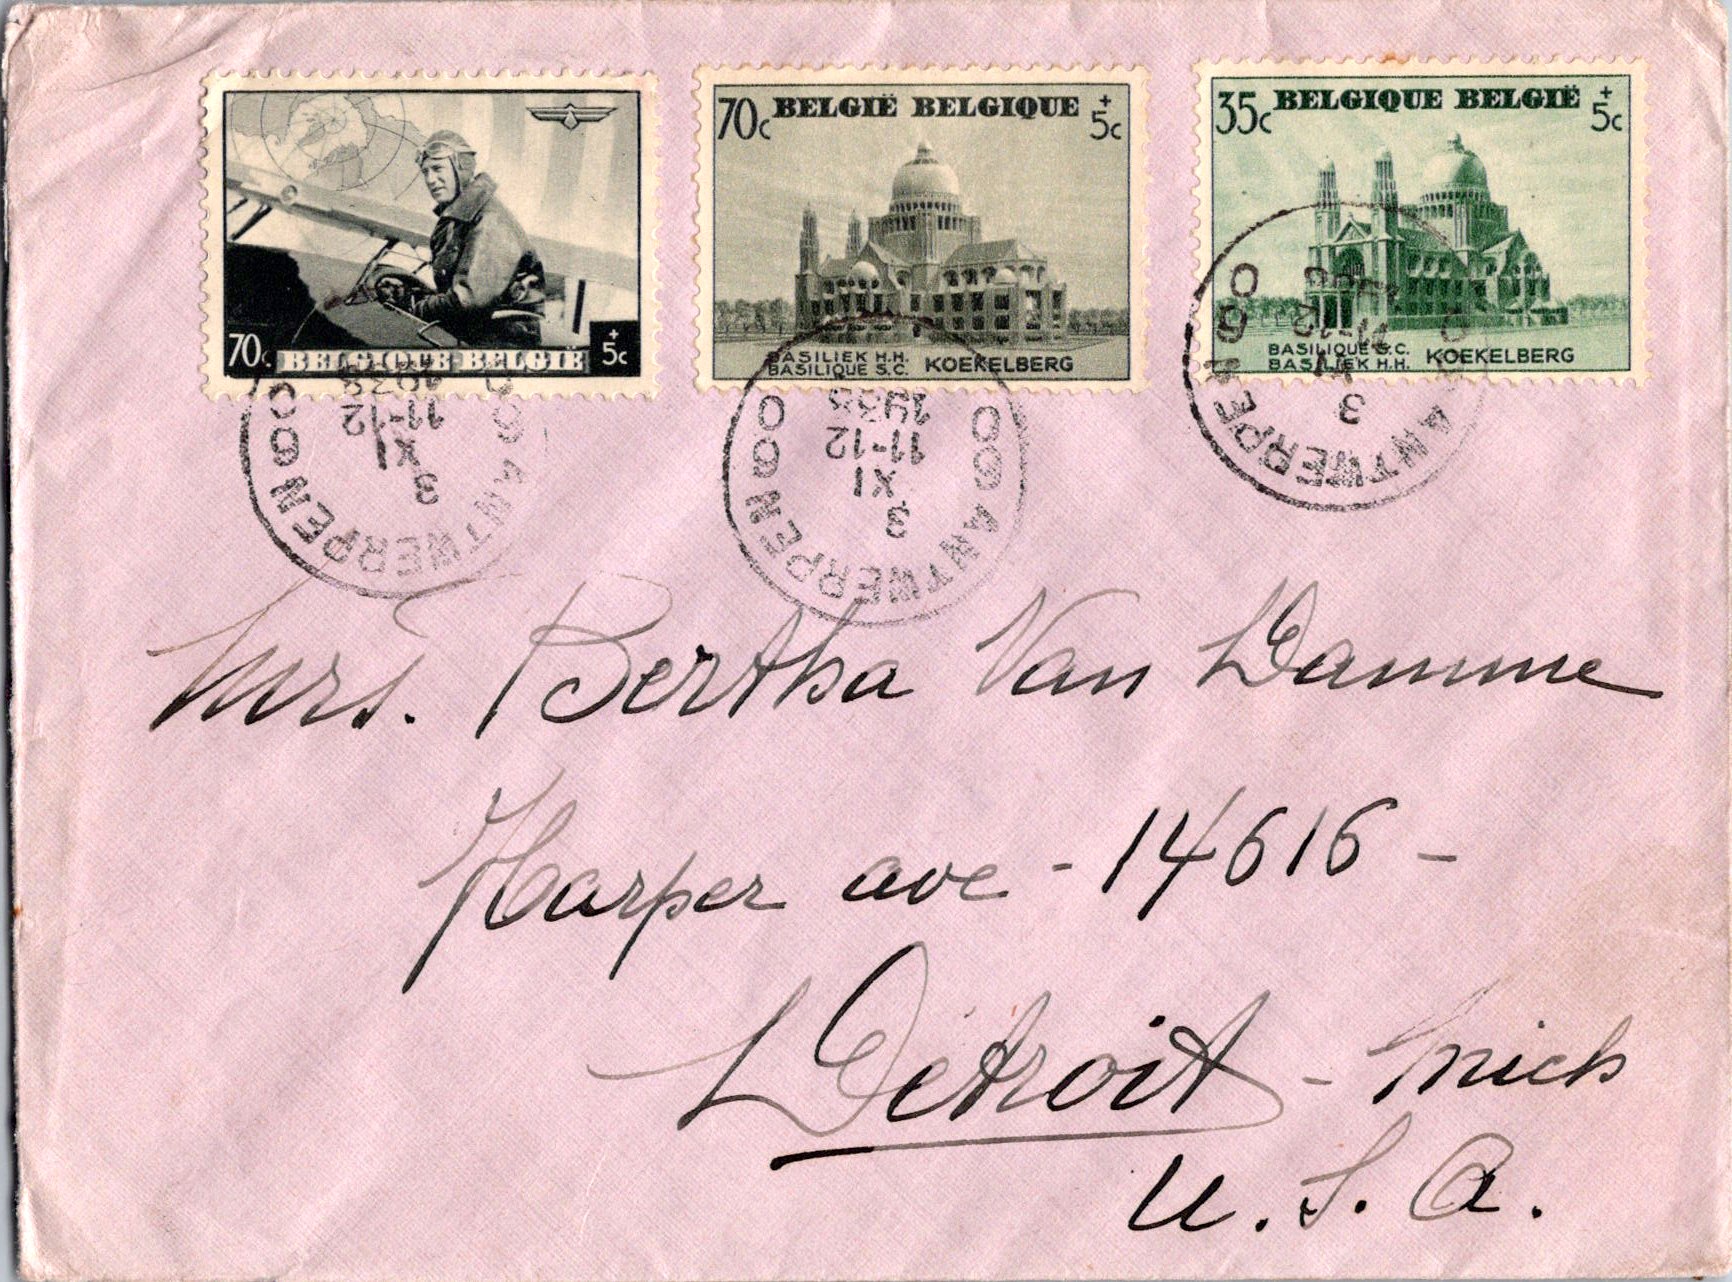 70c BELGIQUE-BELGIË + 5c
70c BELGIË BELGIQUE + 5c
BASILIEK H.H. KOEKELBERG
BASILIQUE S.C.
35c BELGIQUE BELGIË + 5c
BASILIQUE S.C. KOEKELBERG
BASILIEK H.H.
ANTWERPEN
3
XI
11-12
1938
ANTWERPEN
3
XI
11-12
1938
ANTWERPEN
3
Mrs. Bertha Van Damme
Harper ave - 14616 -
Détroit - Mich
U.S.A.